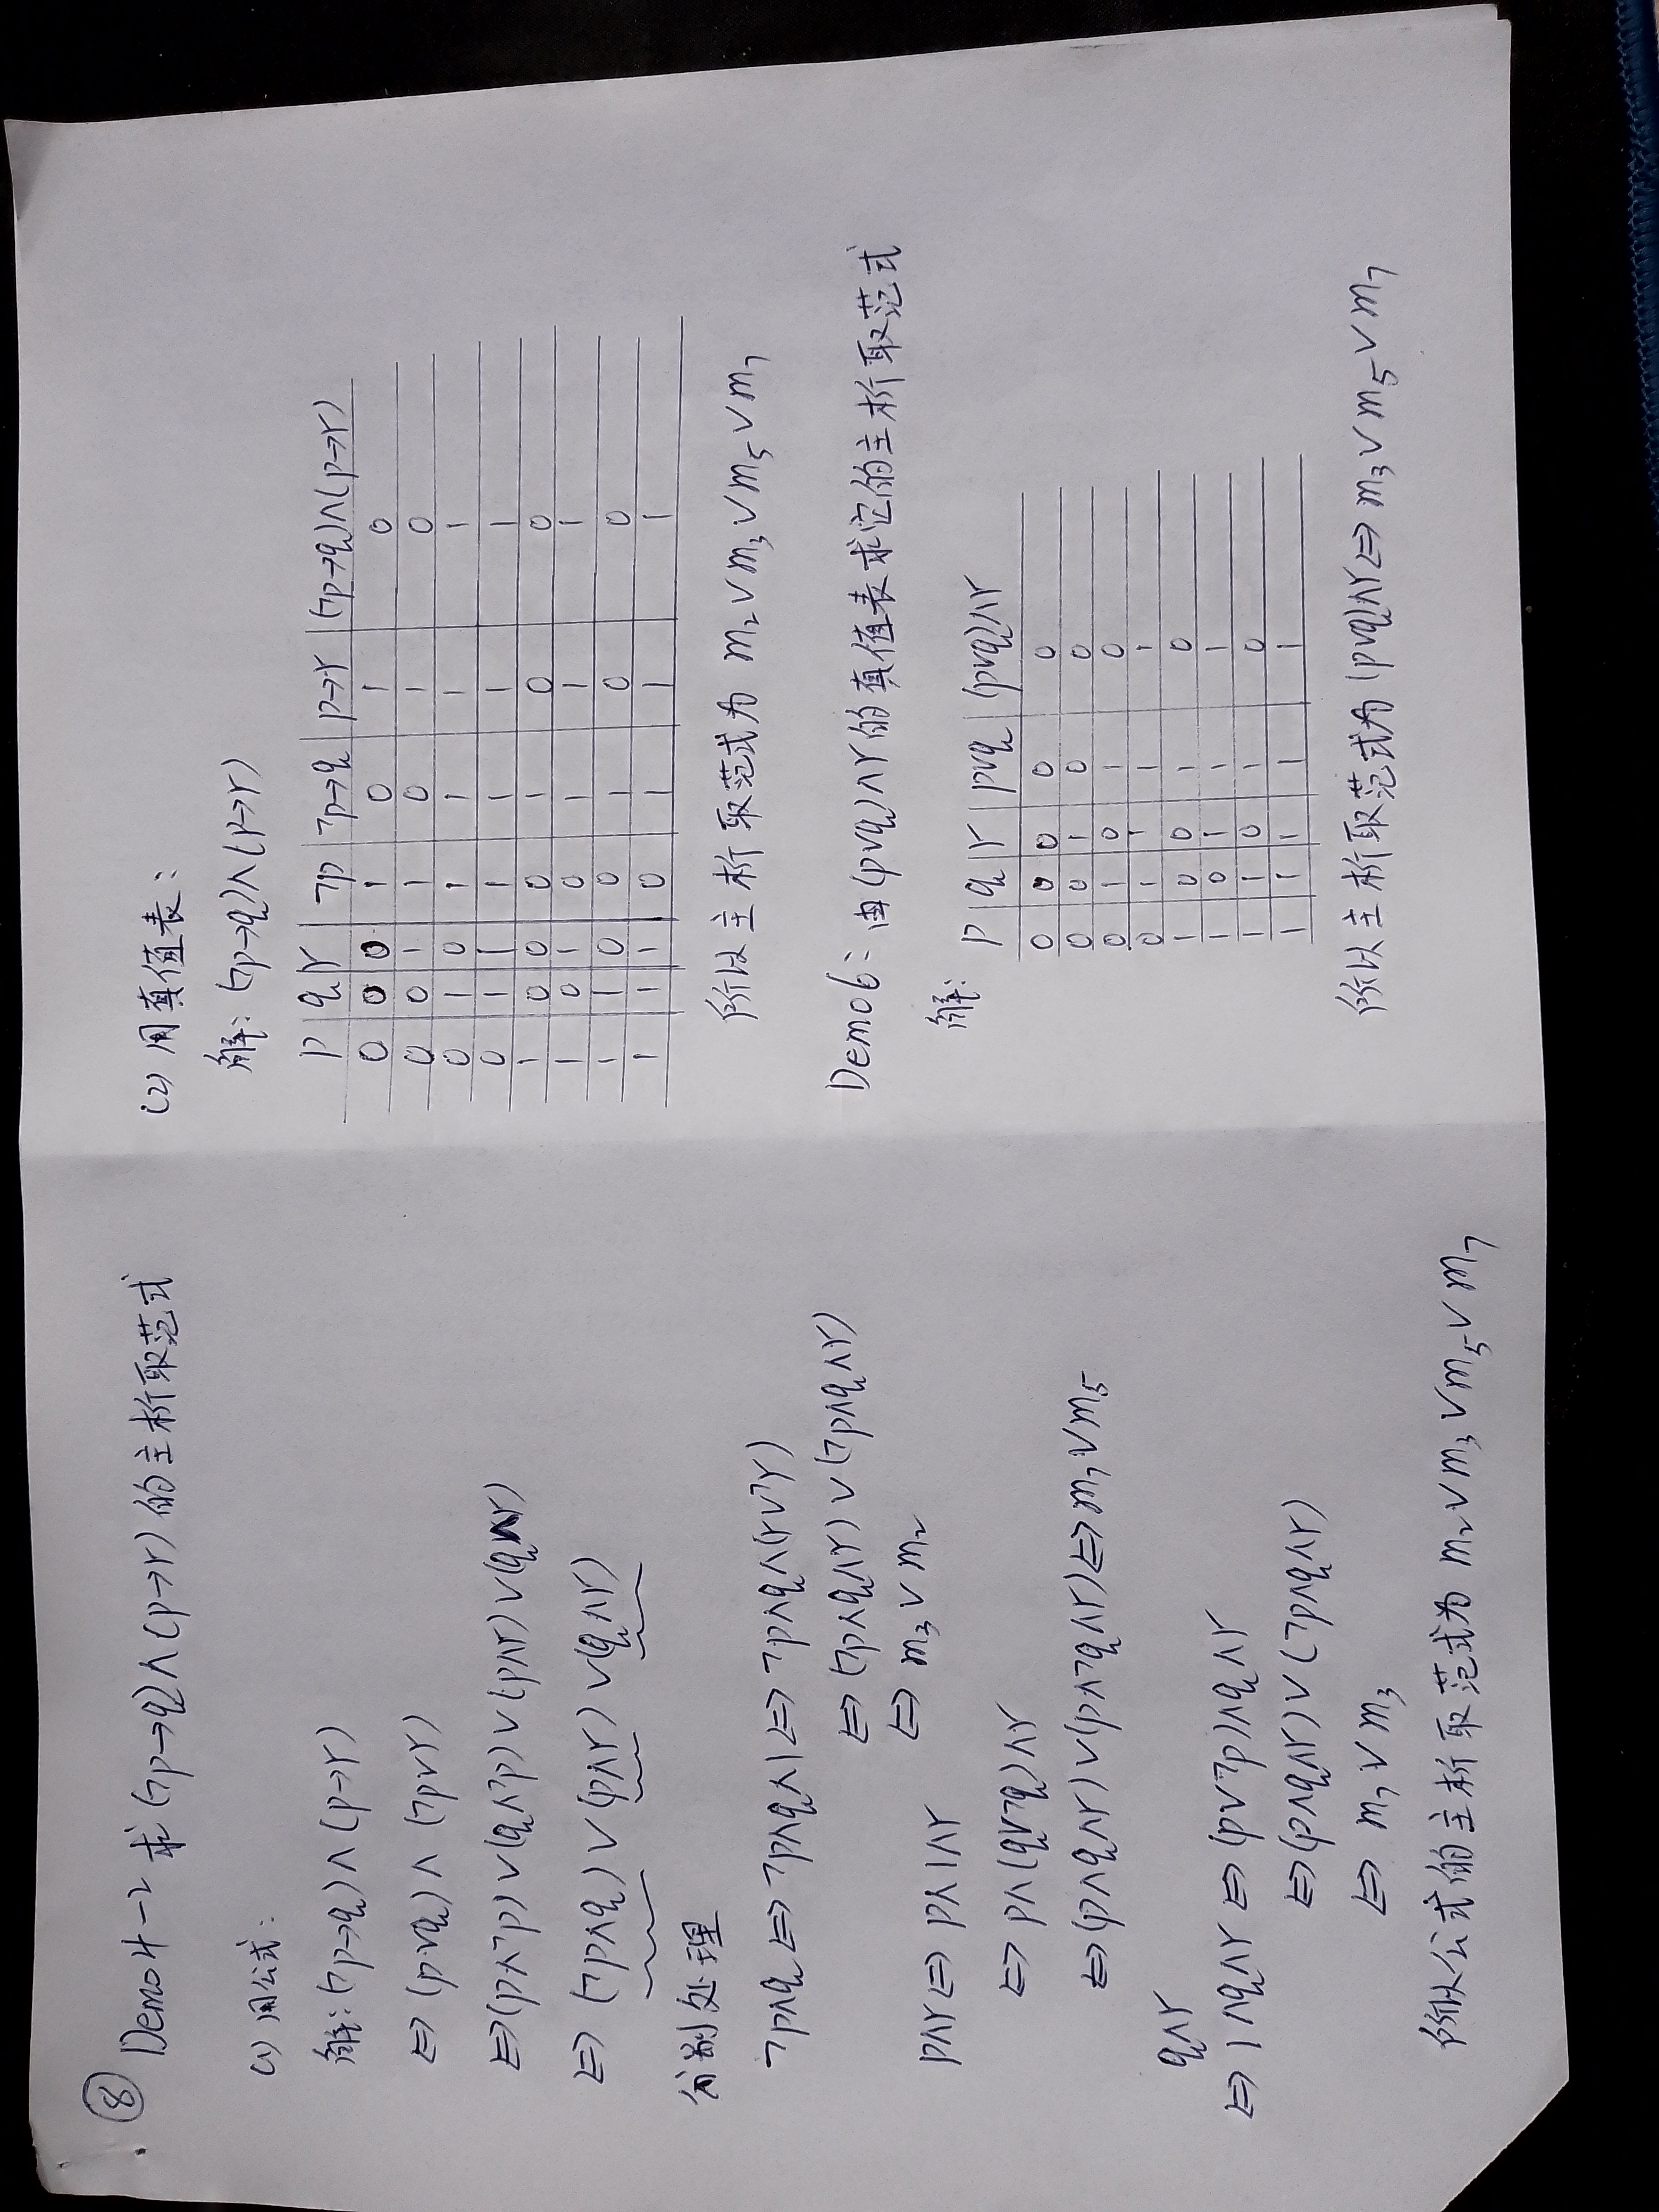 ⑧
Demo4-2 求(¬p→q)∧(p→r)的主析取范式
(1) 用公式:
解:(¬p→q)∧(p→r)
⇔ (p∨q)∧(¬p∨r)
⇔(p∧¬p)∨(q∧¬p)∨(p∧r)∨(q∧r)
⇔ (¬p∧q)∨(p∧r)∨(q∧r)
分别处理
¬p∧q ⇔ ¬p∧q∧1 ⇔ ¬p∧q∧(r∨¬r)
⇔ (¬p∧q∧r)∨(¬p∧q∧r)
⇔ m₃∨m₂
p∧r ⇔ p∧1∧r
⇔ p∧(q∨¬q)∧r
⇔(p∧q∧r)∨(p∧¬q∧r)⇔m₇∨m₅
q∧r
⇔ 1∧q∧r ⇔ (p∨¬p)∧q∧r
⇔(p∧q∧r)∨(¬p∧q∧r)
⇔ m₇∨m₃
所以公式的主析取范式为 m₂∨m₃∨m₅∨m₇
(2) 用真值表:
解:(¬p→q)∧(p→r)
p q r ¬p ¬p→q p→r (¬p→q)∧(p→r)
0 0 0 1 0 1 0
0 0 1 1 0 1 0
0 1 0 1 1 1 1
0 1 1 1 1 1 1
1 0 0 0 1 0 0
1 0 1 0 1 1 1
1 1 0 0 1 0 0
1 1 1 0 1 1 1
所以主析取范式为 m₂∨m₃∨m₅∨m₇
Demo6: 由(p∨q)∧r的真值表求它的主析取范式
解:
p q r p∨q (p∨q)∧r
0 0 0 0 0
0 0 1 0 0
0 1 0 1 0
0 1 1 1 1
1 0 0 1 0
1 0 1 1 1
1 1 0 1 0
1 1 1 1 1
所以主析取范式为(p∨q)∧r⇔m₃∨m₅∨m₇